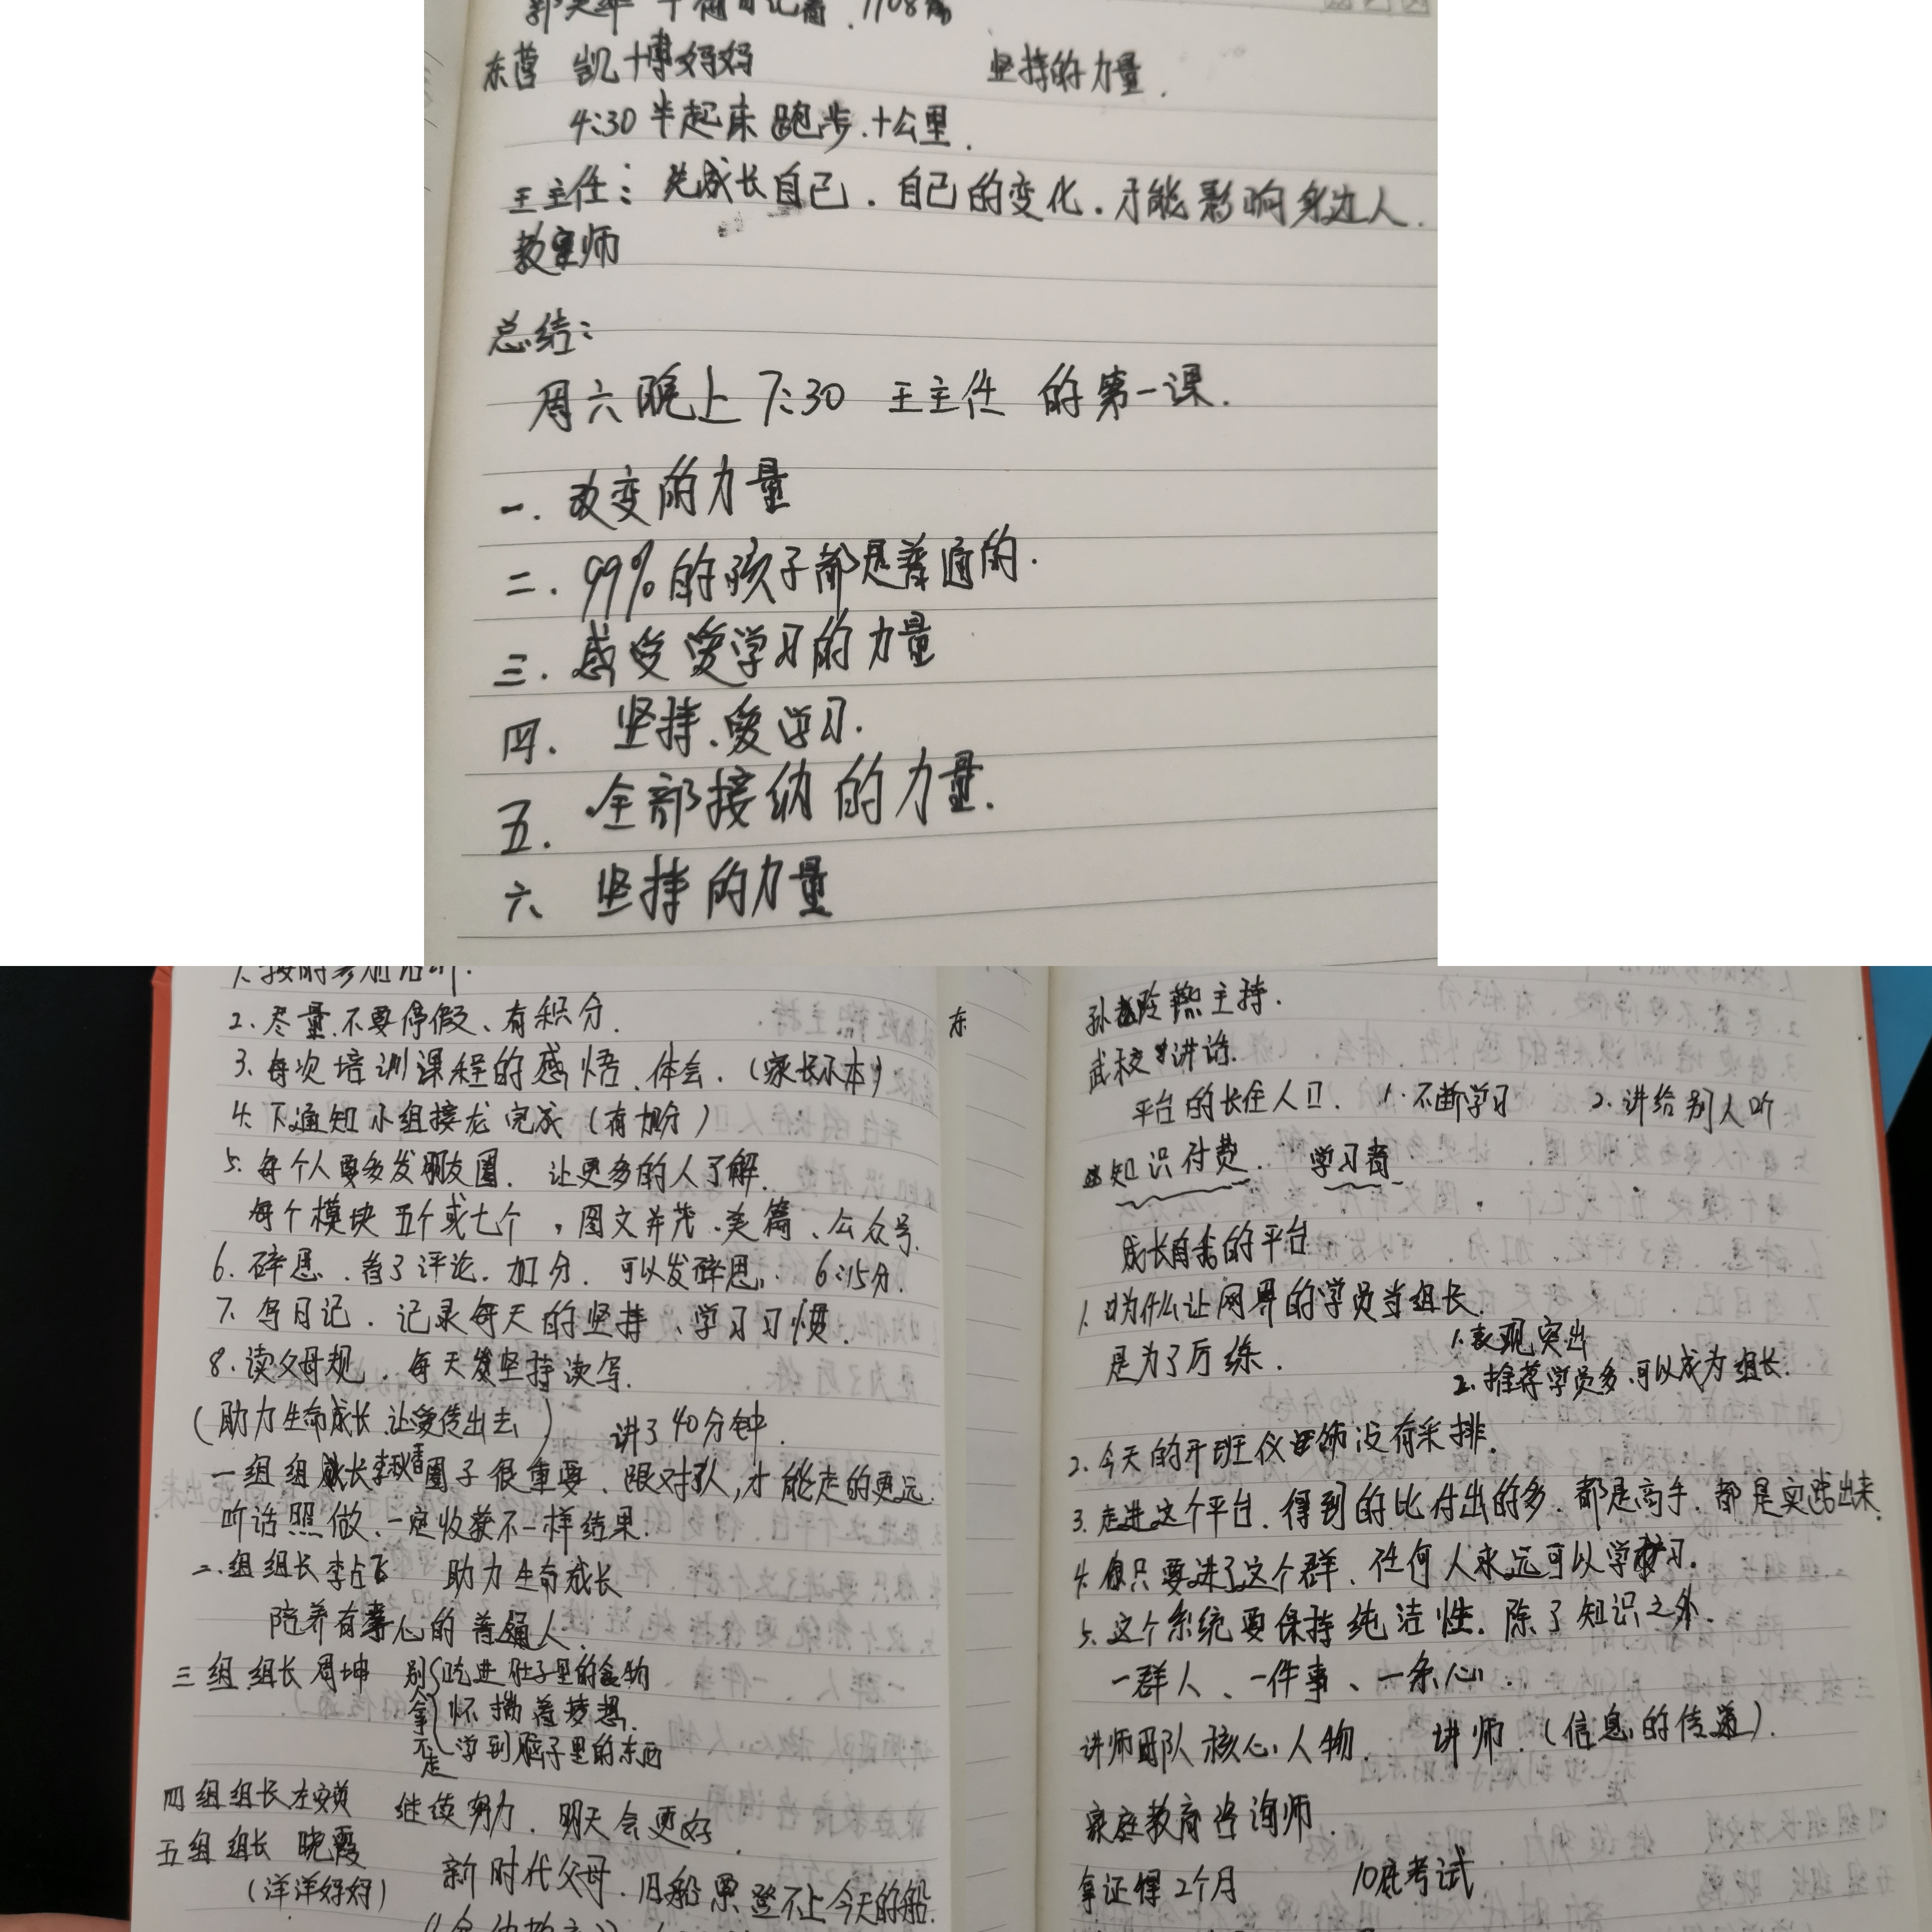 东营 凯博妈妈 坚持的力量.
4:30半起床跑步.十公里.
王主任: 先成长自己.自己的变化.才能影响身边人.
总结:
周六晚上7:30 王主任 的第一课.
一.改变的力量
二.99%的孩子都是普通的.
三.感受爱学习的力量
四. 坚持、爱学习.
五. 全部接纳的力量.
六、坚持的力量
2.尽量不要停假、有积分.
3.每次培训课程的感悟、体会.(家长小本)
4.下通知小组接龙完成(有加分)
5.每个人要多发朋友圈. 让更多的人了解.
每个模块五个或七个,图文并茂.美篇、公众号.
6.碎思.看了评论.加分.可以发碎思. 6:15分.
7.写日记.记录每天的坚持、学习习惯.
8.读父母规.每天坚持读写.
(助力生命成长.让爱传出去) 讲了40分钟.
一组组长李秋香圈子很重要、跟对队,才能走的更远.
听话照做、一定收获不一样结果.
二.组组长李占飞 助力生命成长
陪养有心的普通人.
三组 组长周坤 别拿不走 吃进肚子里的食物
怀揣着梦想.
学到脑子里的东西
四组组长 继续努力.明天会更好.
五组组长 晓霞
(洋洋妈妈) 新时代父母.旧船票登不上今天的船.
东
孙 主持.
武校讲话.
平台的长住人口. 1.不断学习 2.讲给别人听
知识付费. 学习者
成长自我的平台
1.为什么让网界的学员当组长.
是为了厉练. 1.表现突出
2.推荐学员多.可以成为组长.
2.今天的开班仪 没有采排.
3.走进这个平台.得到的比付出的多.都是高手.都是实践出来.
4.你只要进了这个群、任何人永远可以学习.
5.这个系统要保持纯洁性.除了知识之外.
一群人、一件事、一条心.
讲师团队核心人物. 讲师.(信息的传道).
家庭教育咨询师.
拿证得2个月 10底考试